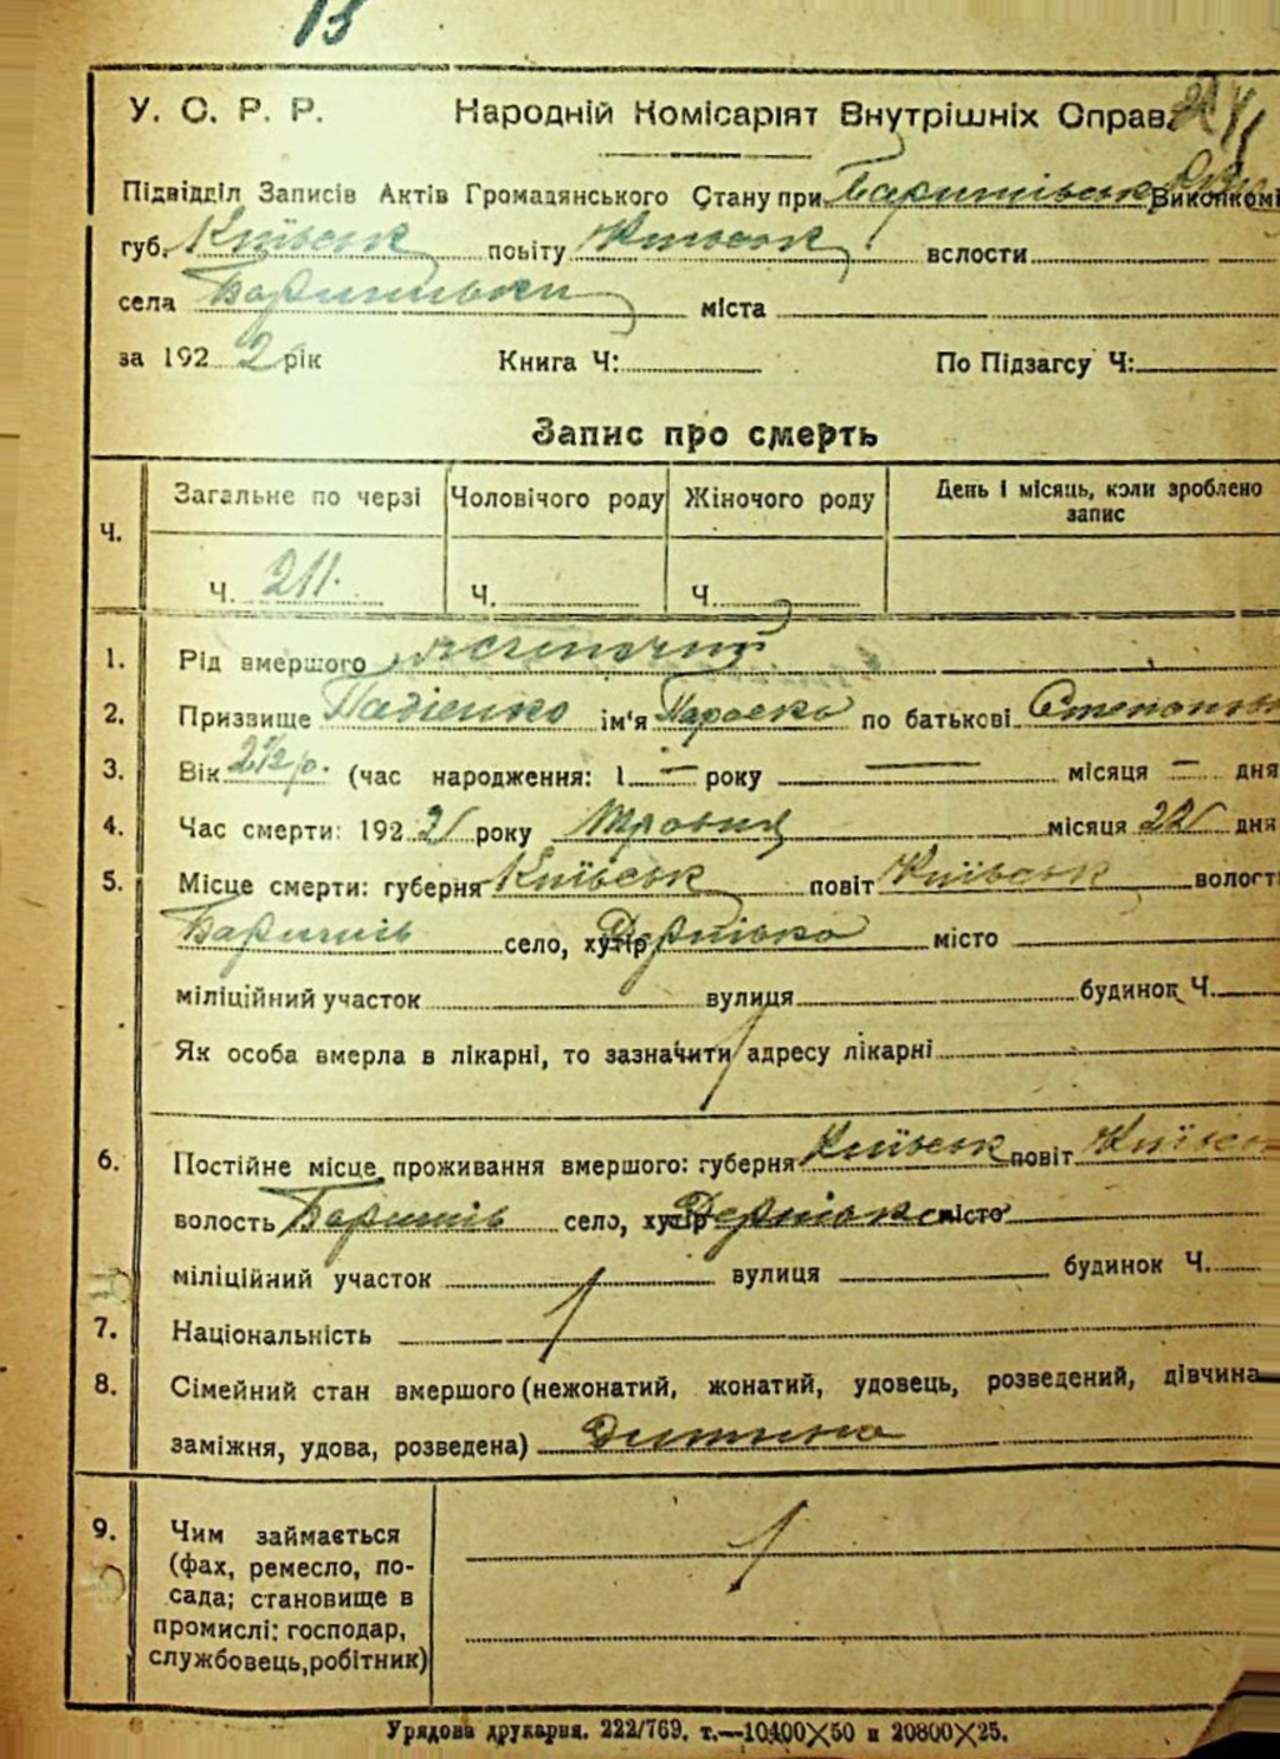 13
У. С. Р. Р. Народній Комісаріят Внутрішніх Справ.
Підвідділ Записів Актів Громадянського Стану при Баришівськ Виконкомі
губ. Київськ повіту Київськ вслости
села Баришівки міста
за 1922 рік Книга Ч: По Підзагсу Ч:
Запис про смерть
Ч. Загальне по черзі Чоловічого роду Жіночого роду День і місяць, коли зроблено
запис
Ч. 211. Ч. Ч.
1. Рід вмершого жіночий
2. Призвище Падієнко ім'я Параска по батькові Степанів
3. Вік 2½ р. (час народження: 1 — року — місяця — дня
4. Час смерти: 192 року Травня місяця 22 дня
5. Місце смерти: губерня Київськ повіт Київськ волості
Баришів село, хутір Дернівка місто
міліційний участок вулиця будинок Ч.
Як особа вмерла в лікарні, то зазначити адресу лікарні
6. Постійне місце проживання вмершого: губерня Київськ повіт Київськ
волость Баришів село, хутір Дернівка місто
міліційний участок вулиця будинок Ч.
7. Національність
8. Сімейний стан вмершого (нежонатий, жонатий, удовець, розведений, дівчина
заміжня, удова, розведена) Дитина
9. Чим займається
(фах, ремесло, по-
сада; становище в
промислі: господар,
службовець, робітник)
Урядова друкарня. 222/769. т.—10400X50 и 20800X25.